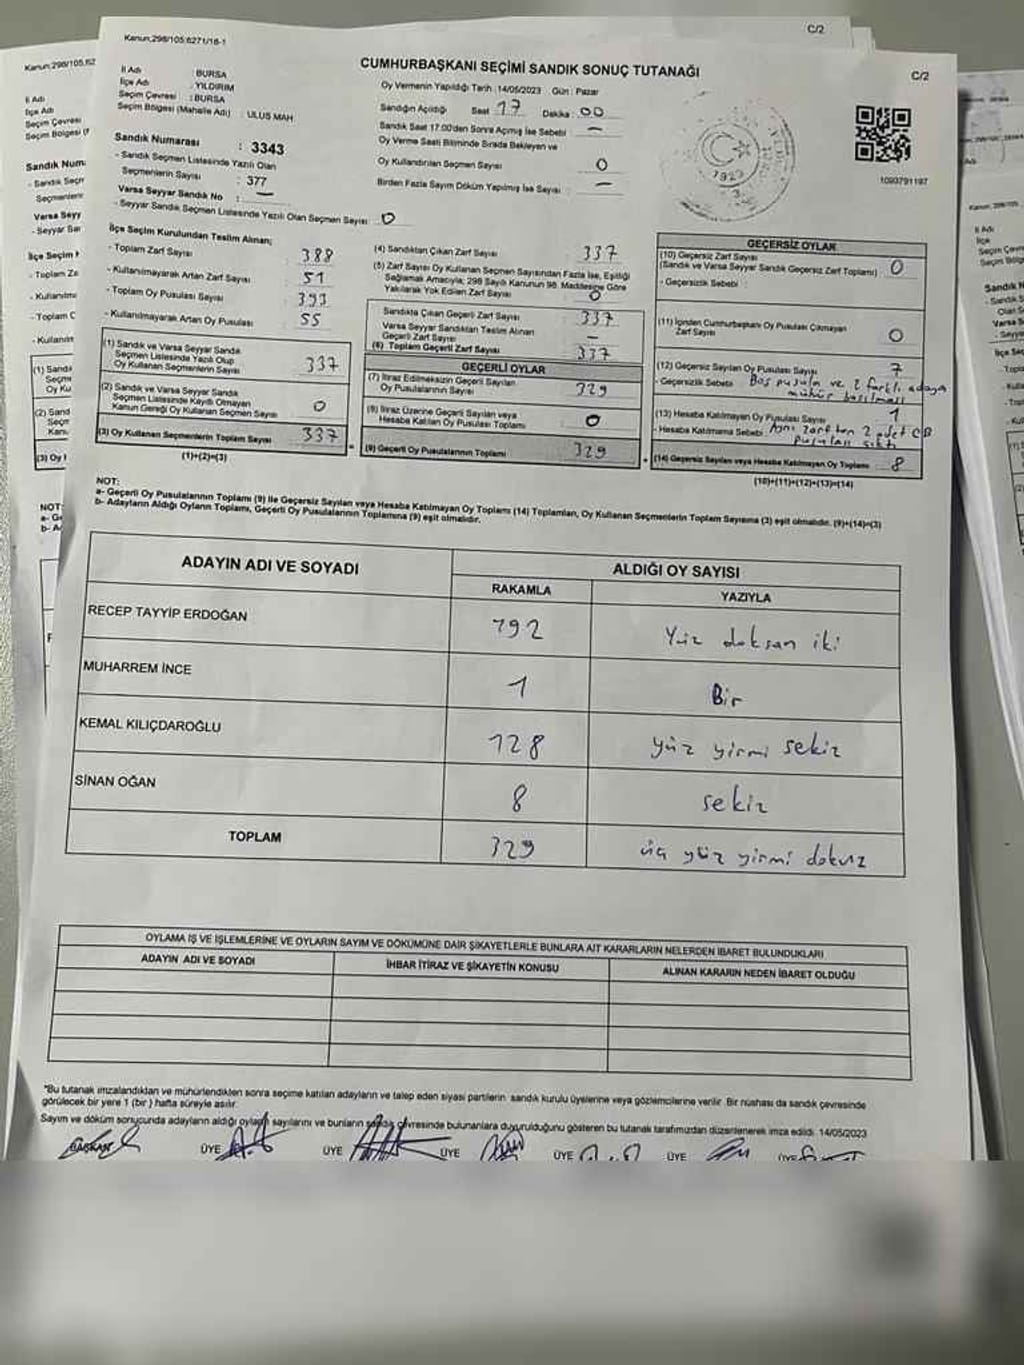 C/2
Kanun;298/105;6271/16-1
CUMHURBAŞKANI SEÇİMİ SANDIK SONUÇ TUTANAĞI
C/2
İl Adı : BURSA
İlçe Adı : YILDIRIM
Seçim Çevresi : BURSA
Seçim Bölgesi (Mahalle Adı) : ULUS MAH
Sandık Numarası : 3343
- Sandık Seçmen Listesinde Yazılı Olan
Seçmenlerin Sayısı : 377
Varsa Seyyar Sandık No : —
- Seyyar Sandık Seçmen Listesinde Yazılı Olan Seçmen Sayısı : 0
Oy Vermenin Yapıldığı Tarih :14/05/2023 Gün : Pazar
Sandığın Açıldığı Saat : 17 Dakika : 00
Sandık Saat 17.00'den Sonra Açmış İse Sebebi : —
Oy Verme Saati Bitiminde Sırada Bekleyen ve
Oy Kullandırılan Seçmen Sayısı : 0
Birden Fazla Sayım Döküm Yapılmış İse Sayısı : —
1923
1090791197
İlçe Seçim Kurulundan Teslim Alınan;
- Toplam Zarf Sayısı : 388
- Kullanılmayarak Artan Zarf Sayısı : 51
- Toplam Oy Pusulası Sayısı : 393
- Kullanılmayarak Artan Oy Pusulası : 55
(1) Sandık ve Varsa Seyyar Sandık
Seçmen Listesinde Yazılı Olup
Oy Kullanan Seçmenlerin Sayısı : 337
(2) Sandık ve Varsa Seyyar Sandık
Seçmen Listesinde Kayıtlı Olmayan
Kanun Gereği Oy Kullanan Seçmen Sayısı : 0
(3) Oy Kullanan Seçmenlerin Toplam Sayısı : 337
(1)+(2)=(3)
(4) Sandıktan Çıkan Zarf Sayısı : 337
(5) Zarf Sayısı Oy Kullanan Seçmen Sayısından Fazla İse, Eşitliği
Sağlamak Amacıyla; 298 Sayılı Kanunun 98. Maddesine Göre
Yakılarak Yok Edilen Zarf Sayısı : 0
Sandıkta Çıkan Geçerli Zarf Sayısı : 337
Varsa Seyyar Sandıktan Teslim Alınan
Geçerli Zarf Sayısı : —
(6) Toplam Geçerli Zarf Sayısı : 337
GEÇERLİ OYLAR
(7) İtiraz Edilmeksizin Geçerli Sayılan
Oy Pusulalarının Sayısı : 329
(8) İtiraz Üzerine Geçerli Sayılan veya
Hesaba Katılan Oy Pusulası Toplamı : 0
(9) Geçerli Oy Pusulalarının Toplamı : 329
GEÇERSİZ OYLAR
(10) Geçersiz Zarf Sayısı
(Sandık ve Varsa Seyyar Sandık Geçersiz Zarf Toplamı) : 0
- Geçersizlik Sebebi :
(11) İçinden Cumhurbaşkanı Oy Pusulası Çıkmayan
Zarf Sayısı : 0
(12) Geçersiz Sayılan Oy Pusulası Sayısı : 7
- Geçersizlik Sebebi : Boş pusula ve 2 farklı adaya
mühür basılması
(13) Hesaba Katılmayan Oy Pusulası Sayısı : 1
- Hesaba Katılmama Sebebi : Aynı zarftan 2 adet CB
pusulası çıktı
(14) Geçersiz Sayılan veya Hesaba Katılmayan Oy Toplamı : 8
(10)+(11)+(12)+(13)=(14)
NOT:
a- Geçerli Oy Pusulalarının Toplamı (9) ile Geçersiz Sayılan veya Hesaba Katılmayan Oy Toplamı (14) Toplamları, Oy Kullanan Seçmenlerin Toplam Sayısına (3) eşit olmalıdır. (9)+(14)=(3)
b- Adayların Aldığı Oyların Toplamı, Geçerli Oy Pusulalarının Toplamına (9) eşit olmalıdır.
ADAYIN ADI VE SOYADI
ALDIĞI OY SAYISI
RAKAMLA YAZIYLA
RECEP TAYYİP ERDOĞAN 192 Yüz doksan iki
MUHARREM İNCE 1 Bir
KEMAL KILIÇDAROĞLU 128 yüz yirmi sekiz
SİNAN OĞAN 8 sekiz
TOPLAM 329 üç yüz yirmi dokuz
OYLAMA İŞ VE İŞLEMLERİNE VE OYLARIN SAYIM VE DÖKÜMÜNE DAİR ŞİKAYETLERLE BUNLARA AİT KARARLARIN NELERDEN İBARET BULUNDUKLARI
ADAYIN ADI VE SOYADI İHBAR İTİRAZ VE ŞİKAYETİN KONUSU ALINAN KARARIN NEDEN İBARET OLDUĞU
*Bu tutanak imzalandıktan ve mühürlendikten sonra seçime katılan adayların ve talep eden siyasi partilerin sandık kurulu üyelerine veya gözlemcilerine verilir. Bir nüshası da sandık çevresinde
görülecek bir yere 1 (bir) hafta süreyle asılır.
Sayım ve döküm sonucunda adayların aldığı oyların sayılarını ve bunların sandık çevresinde bulunanlara duyurulduğunu gösteren bu tutanak tarafımızdan düzenlenerek imza edildi. 14/05/2023
BAŞKAN ÜYE ÜYE ÜYE ÜYE ÜYE ÜYE